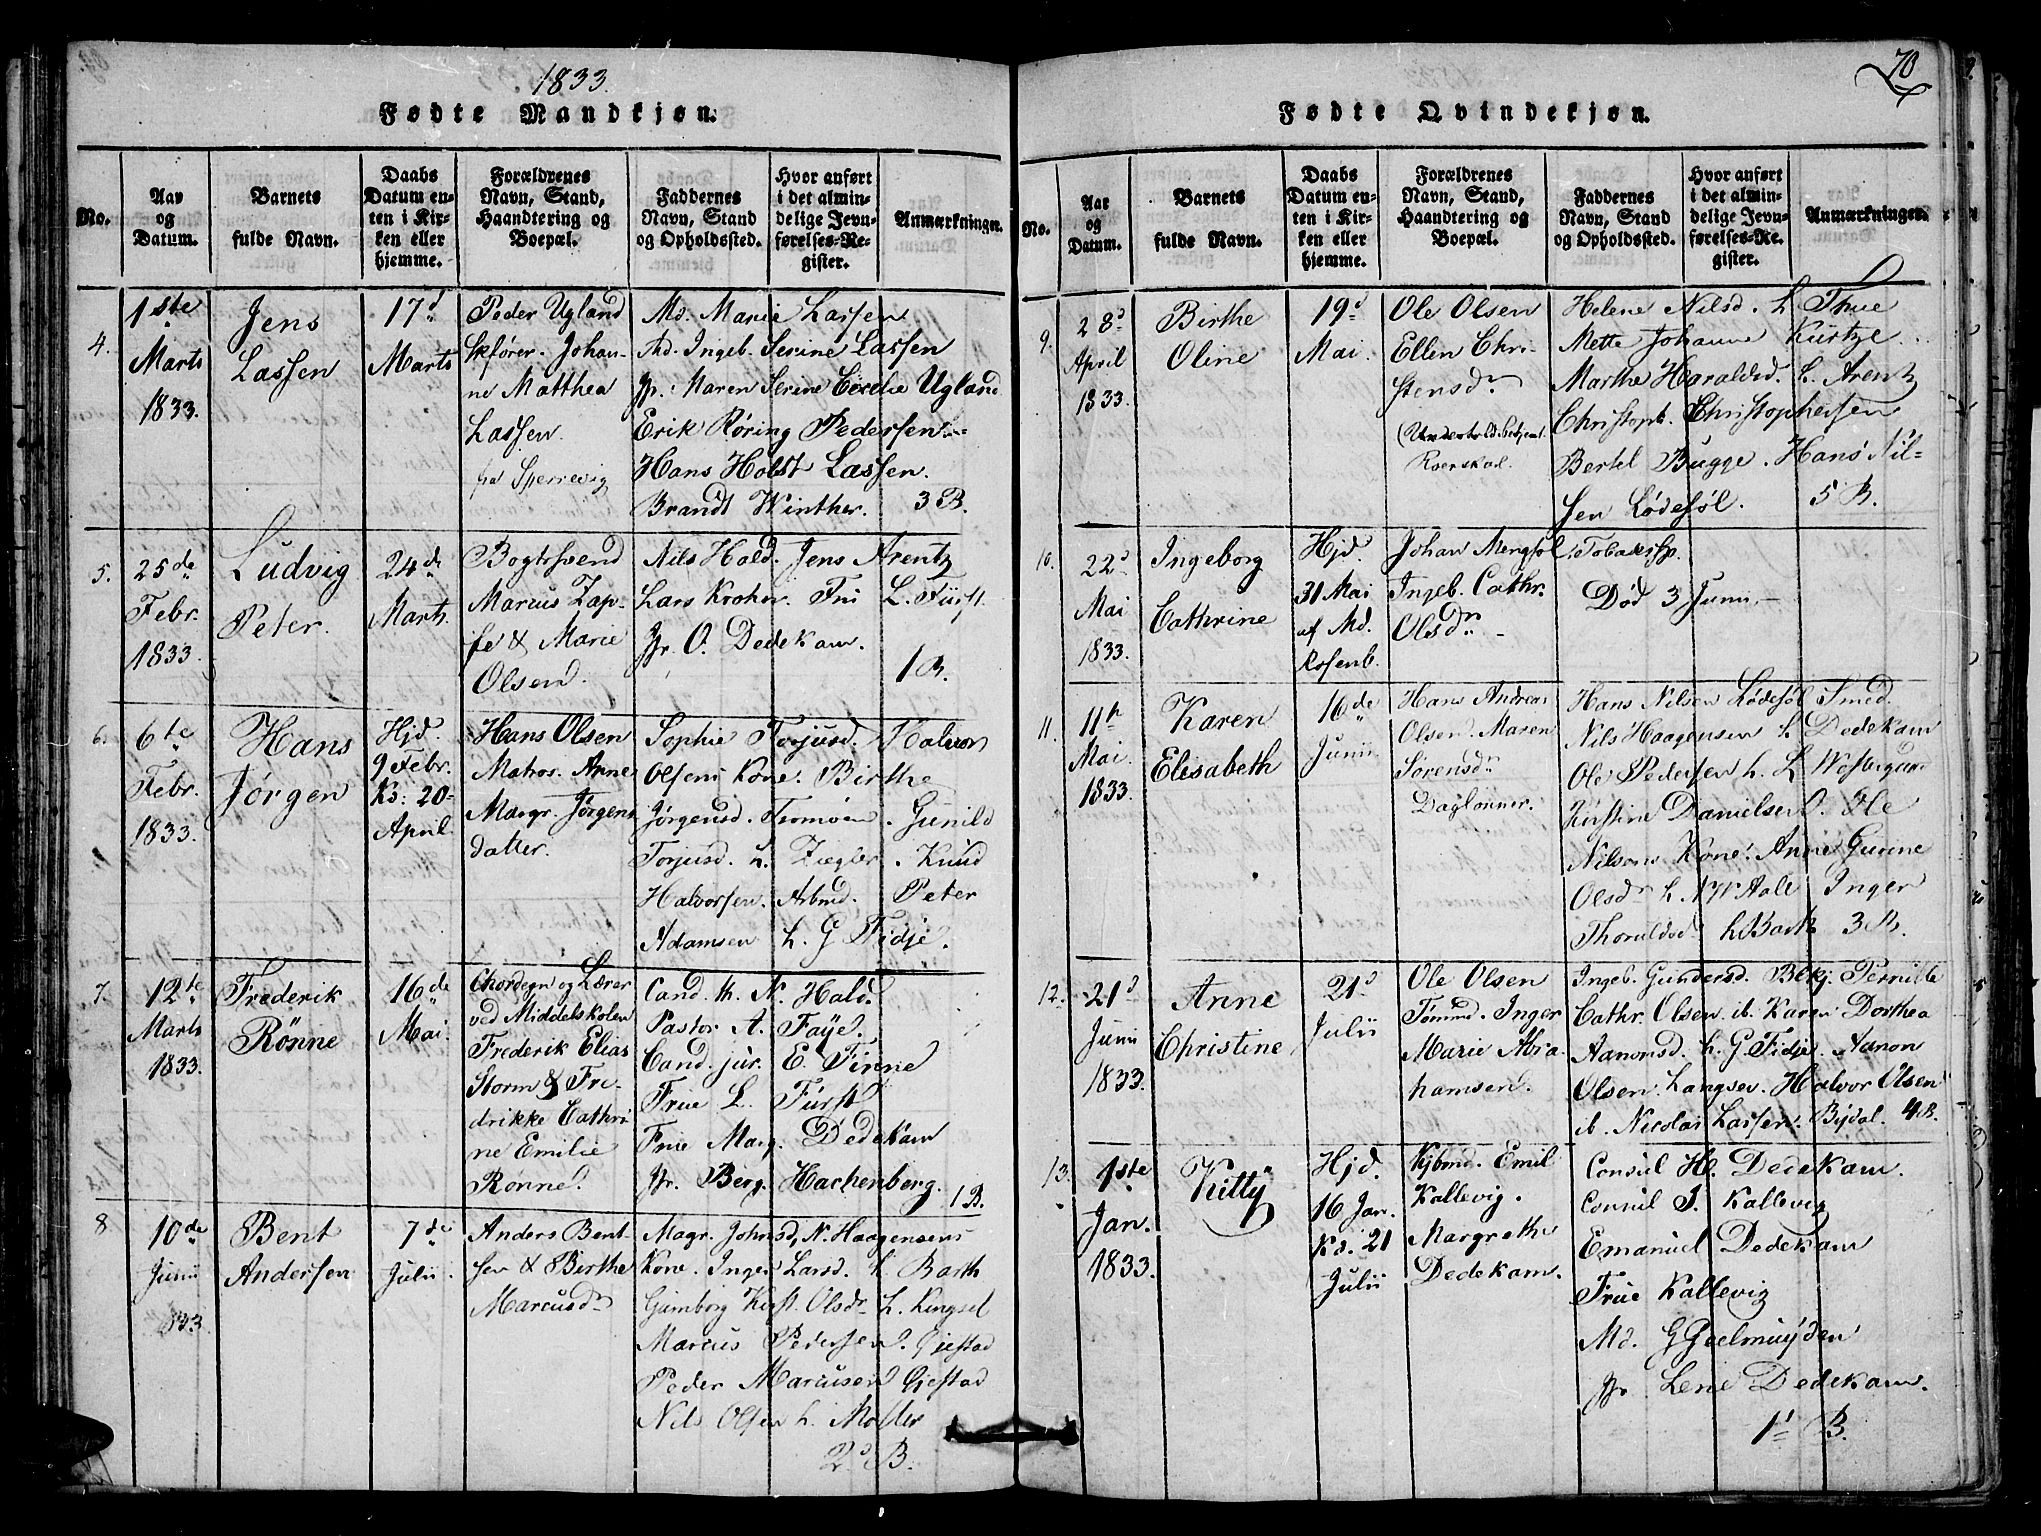 1833.
Fødte Mandkjøn.
No.
Aar og Datum.
Barnets fulde Navn.
Daabs Datum enten i Kirken eller hjemme.
Forældrenes Navn, Stand, Haandtering og Boepæl.
Faddernes Navn, Stand og Opholdssted.
Hvor anført i det almindelige Jevnførelses-Register.
Anmærkninger.
4.
1ste
Marts
1833.
Jens
Lassen
17d
Marts
Peder Ugland
Skfører. Johan-
ne Matthea
Lassen.
Sperrevig
Md. Marie Lassen
Md. Ingeb. Serine Lassen
Jfr. Maren Serine Cecilie Ugland
Erik Røring Pedersen
Hans Holst Lassen.
Brandt Winther. 3 B.
5.
25de
Febr.
1833.
Ludvig
Peter.
24de
Marts.
Bogtr Svend
Marcus Zap-
fe & Marie
Olsen.
Nils Hald. Jens Arentz
Lars Krohn. Fru L. Fürst.
Jfr. O. Dedekam.
1 B.
6.
6te
Febr.
1833.
Hans
Jørgen
Hjd.
9 Febr.
K's: 20
April
Hans Olsen
Matros. Anne
Margr. Jørgens
datter.
Sophie Torjusd. Halvor
Olsens Kone. Birthe
Jørgensd. Tromøen. Gunild
Torjusd. h. Ziegler. Knud
Halvorsen. Arbmd. Peter
Adamsen h. G Fidje.
7.
12te
Marts
1833.
Frederik
Rønne
16de
Mai.
Chordegn og Lærer
ved Middelskolen
Frederik Elias
Storm & Fre-
drikke Cathri
ne Emilie
Rønne.
Cand. th. N. Hald.
Pastor A. Faye.
Cand. jur. E. Finne
Frue L. Fürst
Frue Marg. Dedekam
Jfr. Berg. Hachenberg.
1 B.
8
10de
Junii
1833
Bent
Andersen
7de
Julii.
Anders Bent-
sen & Birthe
Marcusdr
Magr. Johnsd, N. Haagensens
Kone. Inger Larsd. h. Barth
Gumborg Kirst. Olsdr h. Kingsel
Marcus Pedersen. Gjestad
Peder Marcusen Gjestad
Nils Olsen h. Møller
2 B.
70
Fødte Qvindekjøn.
No.
Aar og Datum.
Barnets fulde Navn.
Daabs Datum enten i Kirken eller hjemme.
Forældrenes Navn, Stand, Haandtering og Boepæl.
Faddernes Navn, Stand og Opholdssted.
Hvor anført i det almindelige Jevnførelses-Register.
Anmærkninger.
9.
28d
April
1833.
Birthe
Oline
19d
Mai.
Ole Olsen
Ellen Chri-
stensdr
Helene Nilsd. h Thue
Mette Johanne Kürtze
Marthe Haraldsd. h. Arentz
Christoph. Christophersen
Bertel Bugge. Hans Nil-
sen Lødesøl. 5 B.
10.
22d
Mai
1833.
Ingeborg
Cathrine
Hjd.
31 Mai
af Md.
Rosenb.
Johan Mengsøl. Tobaksp.
Ingeb. Cathr.
Olsdr
Død 3 Junii
11.
11te
Mai
1833.
Karen
Elisabeth
16de
Junii
Hans Andreas
Olsen. Maren
Sørensdr
Daglønner.
Hans Nilsen Lødesøl Smed.
Nils Haagensen h Dedekam
Ole Pedersen h. L Westergaard
Kirstine Danielsen. Ole
Nilsens Kone. Anne Gurine
Olsdr h. N W Aale Inger
Thoruldsd h Barth 3 B.
12.
21d
Junii
1833.
Anne
Christine
21d
Julii
Ole Olsen
Tømmd. Inger
Marie Abra
hamsen.
Ingeb. Gundersd. Blekj. Pernille
Cathr. Olsen ib. Karen Dorthea
Aanonsd. h. G. Fidje. Aanon
Olsen Langsev. Halvor Olsen
ib. Nicolai Lassen. Bijdal. 4 B.
13.
1ste
Jan.
1833.
Kitty
Hjd.
16 Jan.
Ks. 21
Julii
Kjbmd. Emil
Kallevig.
Margrethe
Dedekam.
Consul H. Dedekam.
Consul S. Kallevig
Emanuel Dedekam
Frue Kallevig
Md. G Geelmuyden
Jfr Lene Dedekam.
1 B.